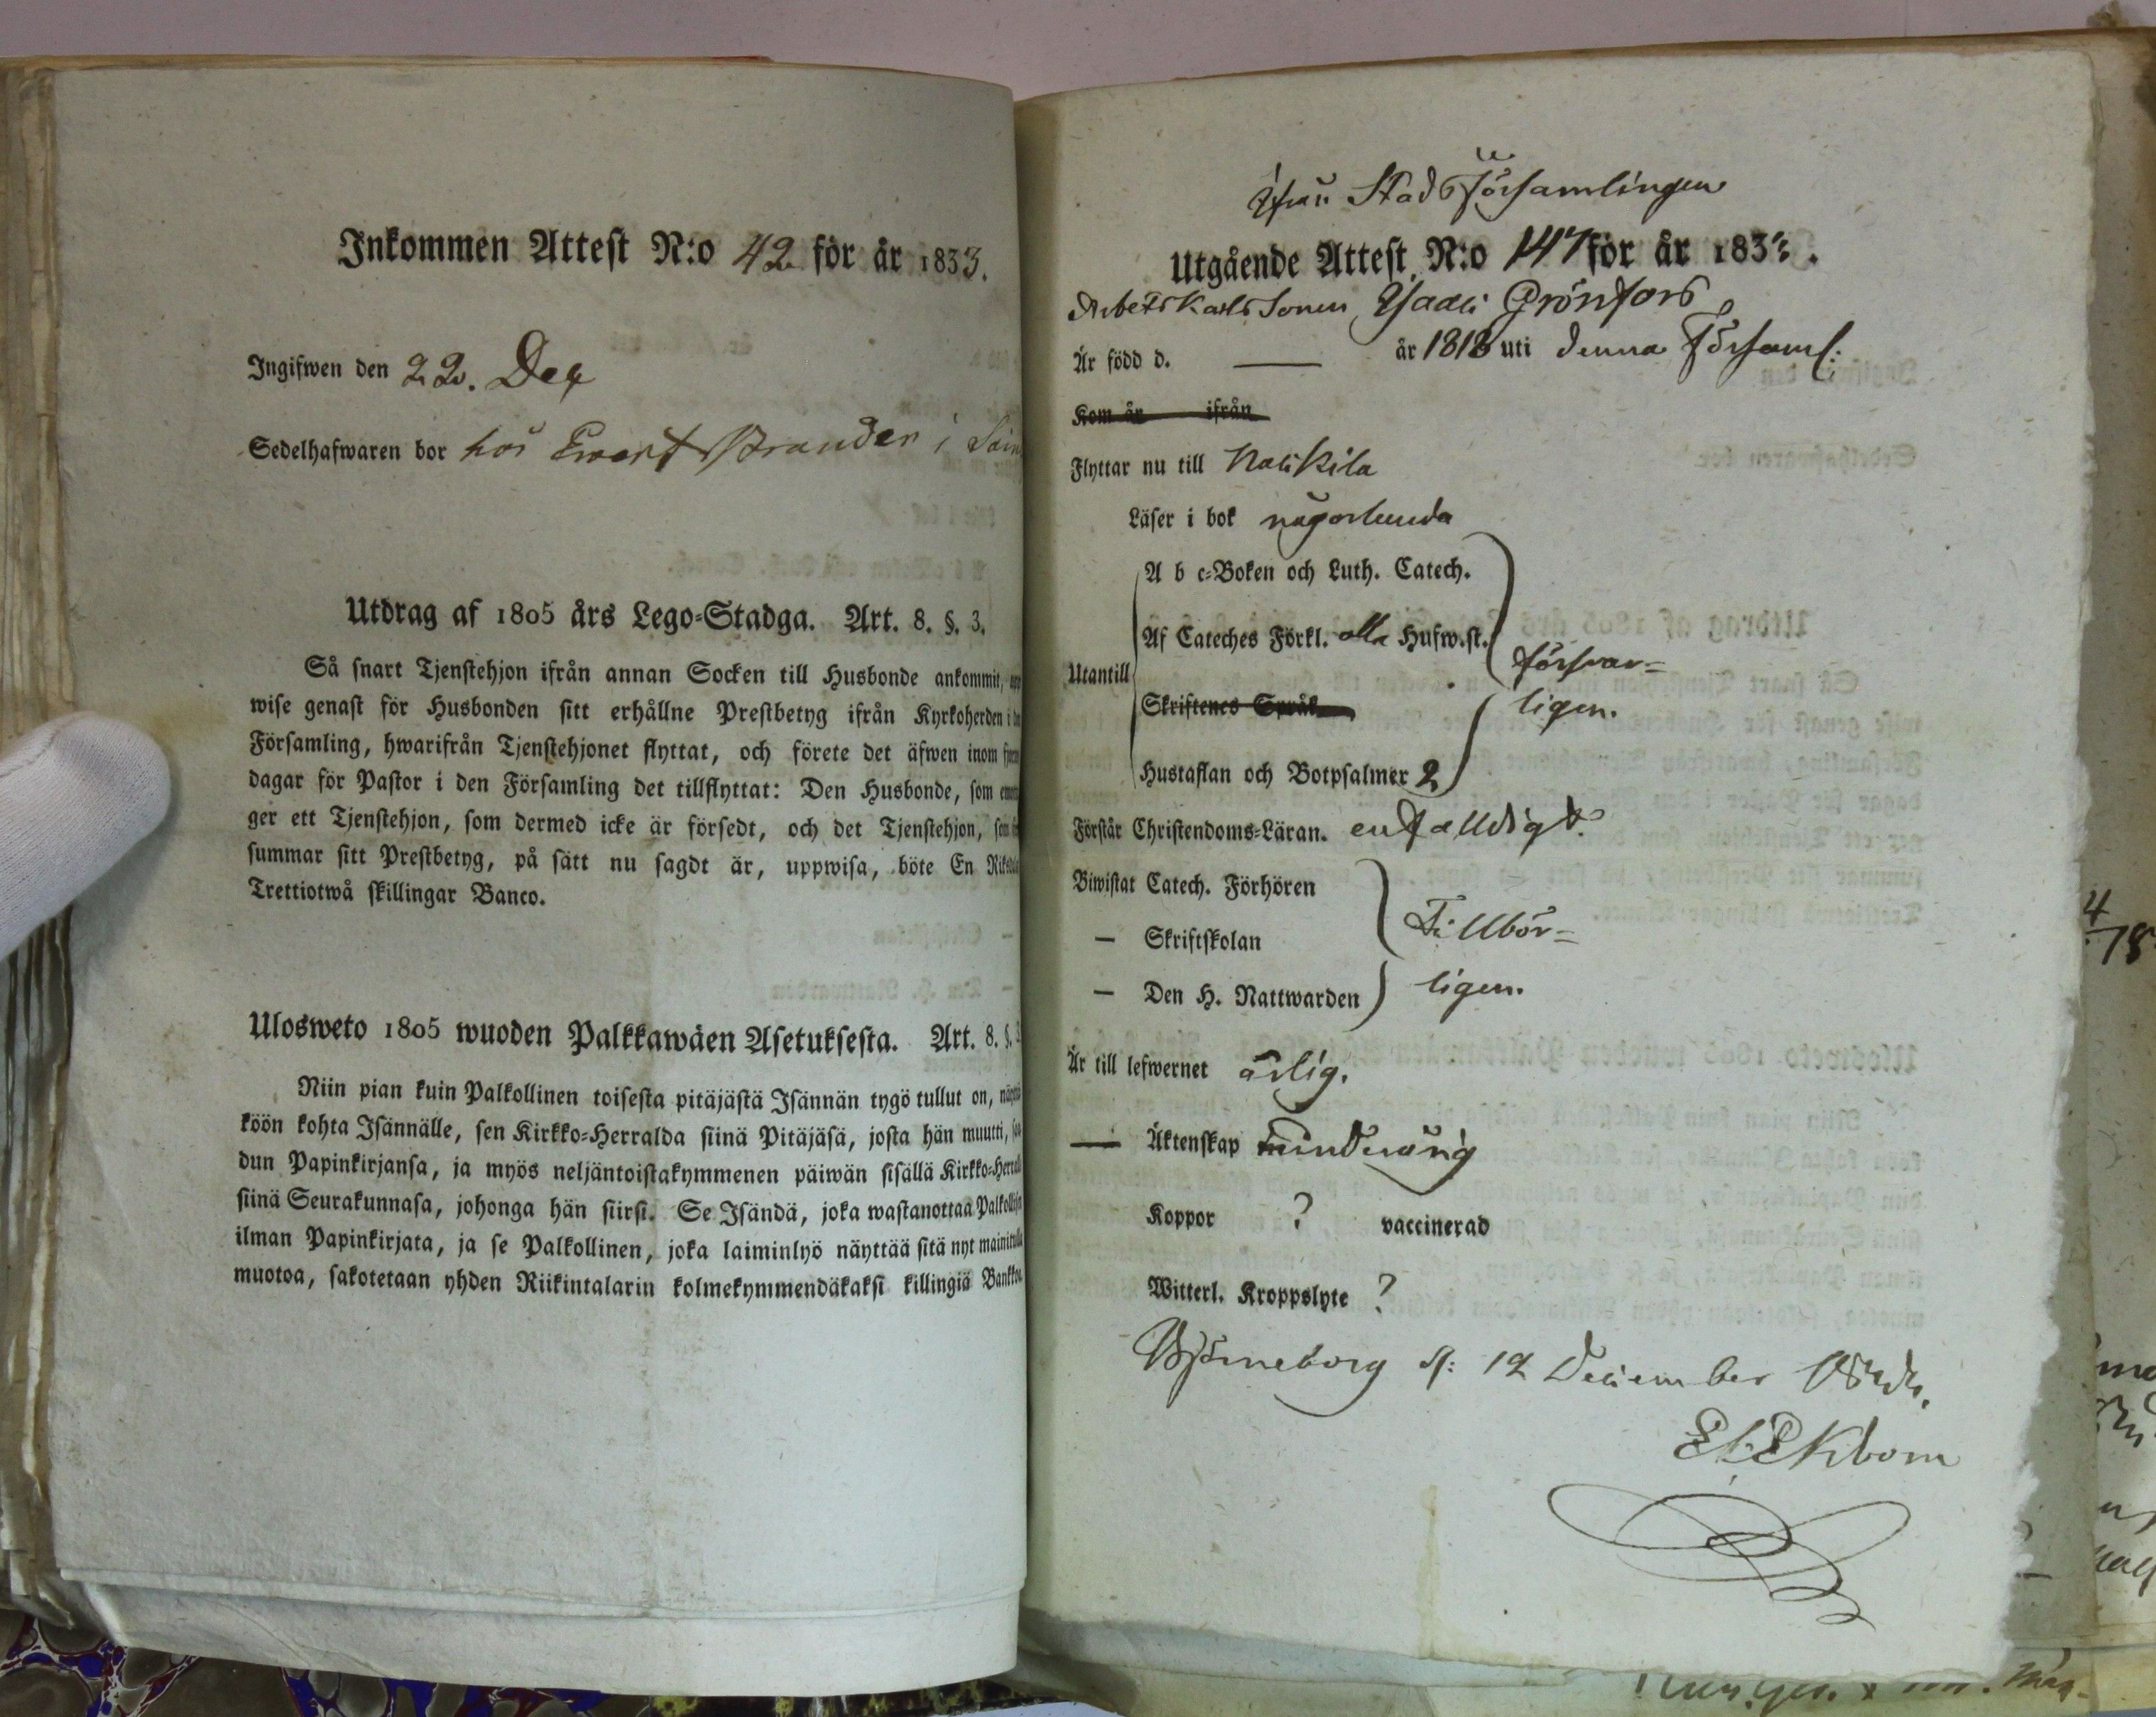 Inkommen Attest N:o 42 för år 1833.
Ingifwen den 22. Dec
Sedelhafwaren bor hos Strander i
Utdrag af 1805 års Lego-Stadga. Art. 8. §. 3.
Så snart Tjenstehjon ifrån annan Socken till Husbonde ankommit,
wise genast för Husbonden sitt erhållne Prestbetyg ifrån Kyrkoherden i
Församling, hwarifrån Tjenstehjonet flyttat, och förete det äfwen inom
dagar för Pastor i den Församling det tillflyttat: Den Husbonde, som
ger ett Tjenstehjon, som dermed icke är försedt, och det Tjenstehjon,
summar sitt Prestbetyg, på sätt nu sagdt är, uppwisa, böte En
Trettiotwå skillingar Banco.
Ulosweto 1805 wuoden Palkkawäen Asetuksesta. Art. 8. §.
Niin pian kuin Palkollinen toisesta pitäjästä Isännän tygö tullut on,
köön kohta Isännälle, sen Kirkko-Herralda siinä Pitäjäsä, josta hän muutti,
dun Papinkirjansa, ja myös neljäntoistakymmenen päiwän sisällä
siinä Seurakunnasa, johonga hän siirsi. Se Isändä, joka wastanottaa
ilman Papinkirjata, ja se Palkollinen, joka laiminlyö näyttää sitä nyt
muotoa, sakotetaan yhden Riikintalarin kolmekymmendäkaksi killingiä
Ifrån Stads Församlingen
Utgående Attest, N:o 147 för år 183
Arbets Karls Sonen Grönfors
Är född d. — år 1818 uti denna Församl:
Kom år ifrån
Flyttar nu till Nakkila
Läser i bok någorlunda
A b c-Boken och Luth. Catech.
Af Cateches Förkl. alla Hufw.st.
Utantill
försvar=
Skriftenes Språk
ligen.
Hustaflan och Botpsalmer 2
Förstår Christendoms-Läran. enfalldigt.
Biwistat Catech. Förhören
— Skriftskolan
Tillbör=
— Den H. Nattwarden
ligen.
Är till lefwernet ärlig.
— Äktenskap minderårig
Koppor ? vaccinerad
Witterl. Kroppslyte ?
Björneborg d: 12 December
Ekbom